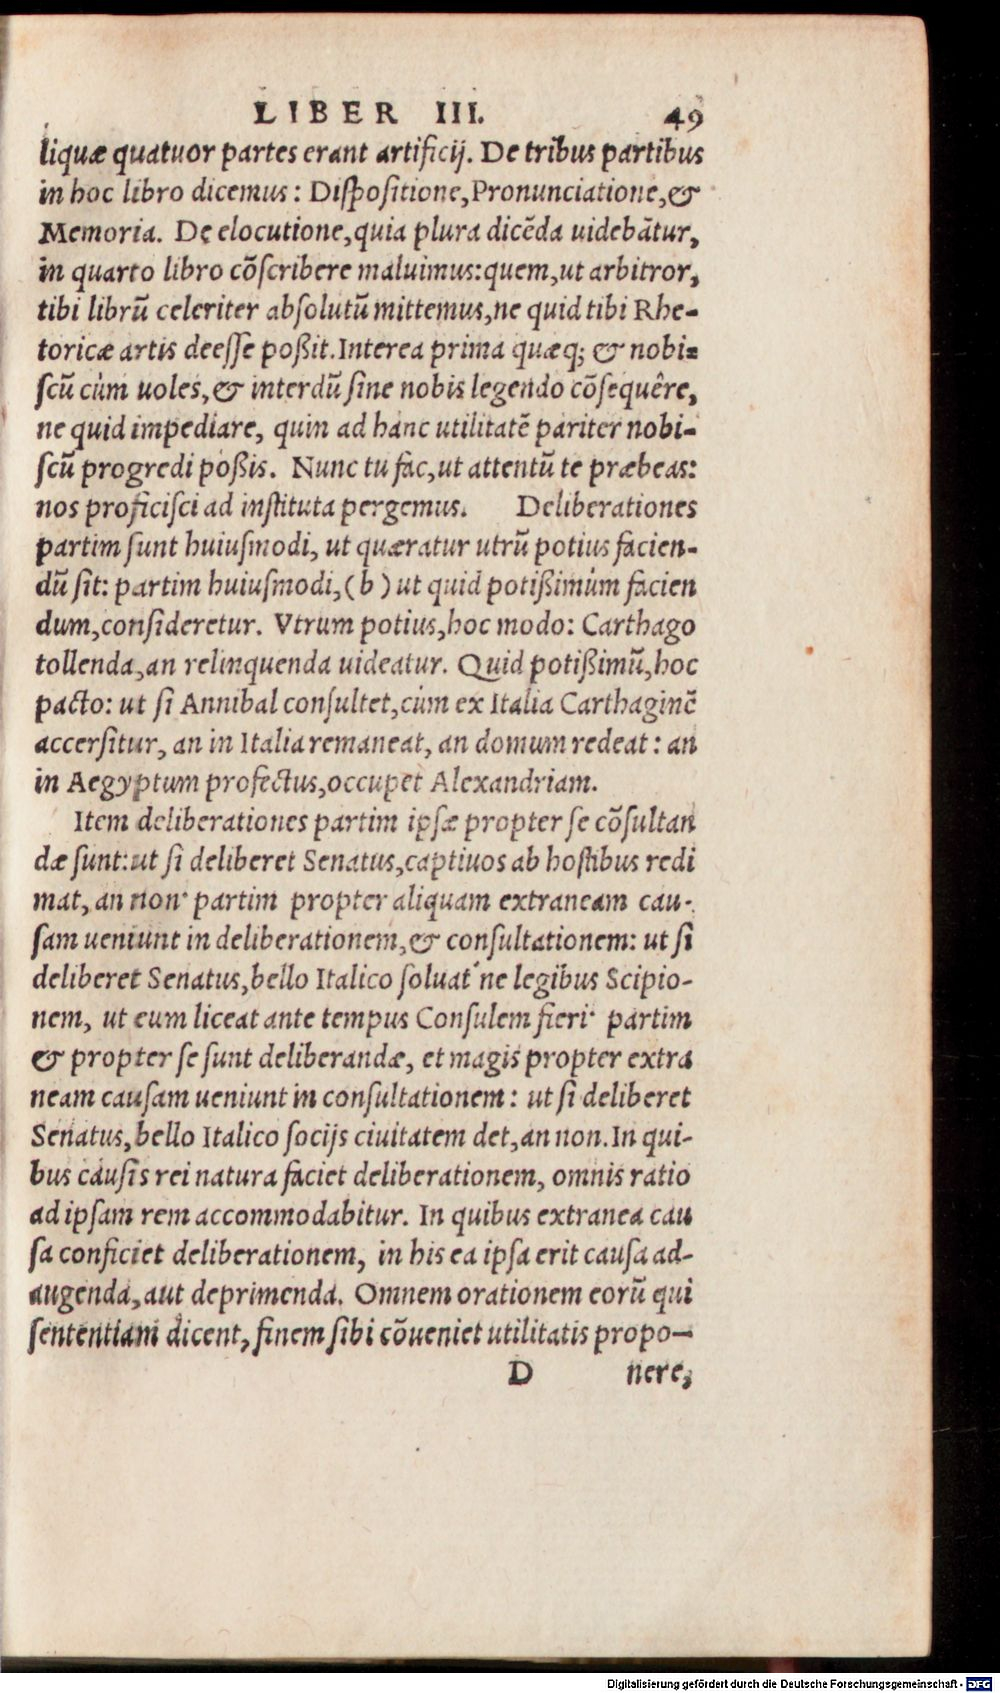 LIBER III. 49
liquæ quatuor partes erant artificij. De tribus partibus
in hoc libro dicemus: Diſpoſitione, Pronunciatione, &
Memoria. De elocutione, quia plura dicẽda uidebãtur,
in quarto libro cõſcribere maluimus: quem, ut arbitror,
tibi librũ celeriter abſolutũ mittemus, ne quid tibi Rhe-
toricæ artis deeſſe poßit. Interea prima quæq; & nobi-
ſcũ cùm uoles, & interdũ ſine nobis legendo cõſequêre,
ne quid impediare, quin ad hanc utilitatẽ pariter nobi-
ſcũ progredi poßis. Nunc tu fac, ut attentũ te præbeas:
nos proficiſci ad inſtituta pergemus. Deliberationes
partim ſunt huiuſmodi, ut quæratur utrũ potius facien-
dũ ſit: partim huiuſmodi, (b) ut quid potißimùm facien
dum, conſideretur. Vtrum potius, hoc modo: Carthago
tollenda, an relinquenda uideatur. Quid potißimũ, hoc
pacto: ut ſi Annibal conſultet, cùm ex Italia Carthaginẽ
accerſitur, an in Italia remaneat, an domum redeat: an
in Aegyptum profectus, occupet Alexandriam.
Item deliberationes partim ipſæ propter ſe cõſultan
dæ ſunt: ut ſi deliberet Senatus, captiuos ab hoſtibus redi
mat, an non· partim propter aliquam extraneam cau-
ſam ueniunt in deliberationem, & conſultationem: ut ſi
deliberet Senatus, bello Italico ſoluat'ne legibus Scipio-
nem, ut eum liceat ante tempus Conſulem fieri· partim
& propter ſe ſunt deliberandæ, et magis propter extra
neam cauſam ueniunt in conſultationem: ut ſi deliberet
Senatus, bello Italico ſocijs ciuitatem det, an non. In qui-
bus cauſis rei natura faciet deliberationem, omnis ratio
ad ipſam rem accommodabitur. In quibus extranea cau
ſa conficiet deliberationem, in his ea ipſa erit cauſa ad-
augenda, aut deprimenda. Omnem orationem eorũ qui
ſententiam dicent, finem ſibi cõueniet utilitatis propo-
D nere,
Digitalisierung gefördert durch die Deutsche Forschungsgemeinschaft - DFG